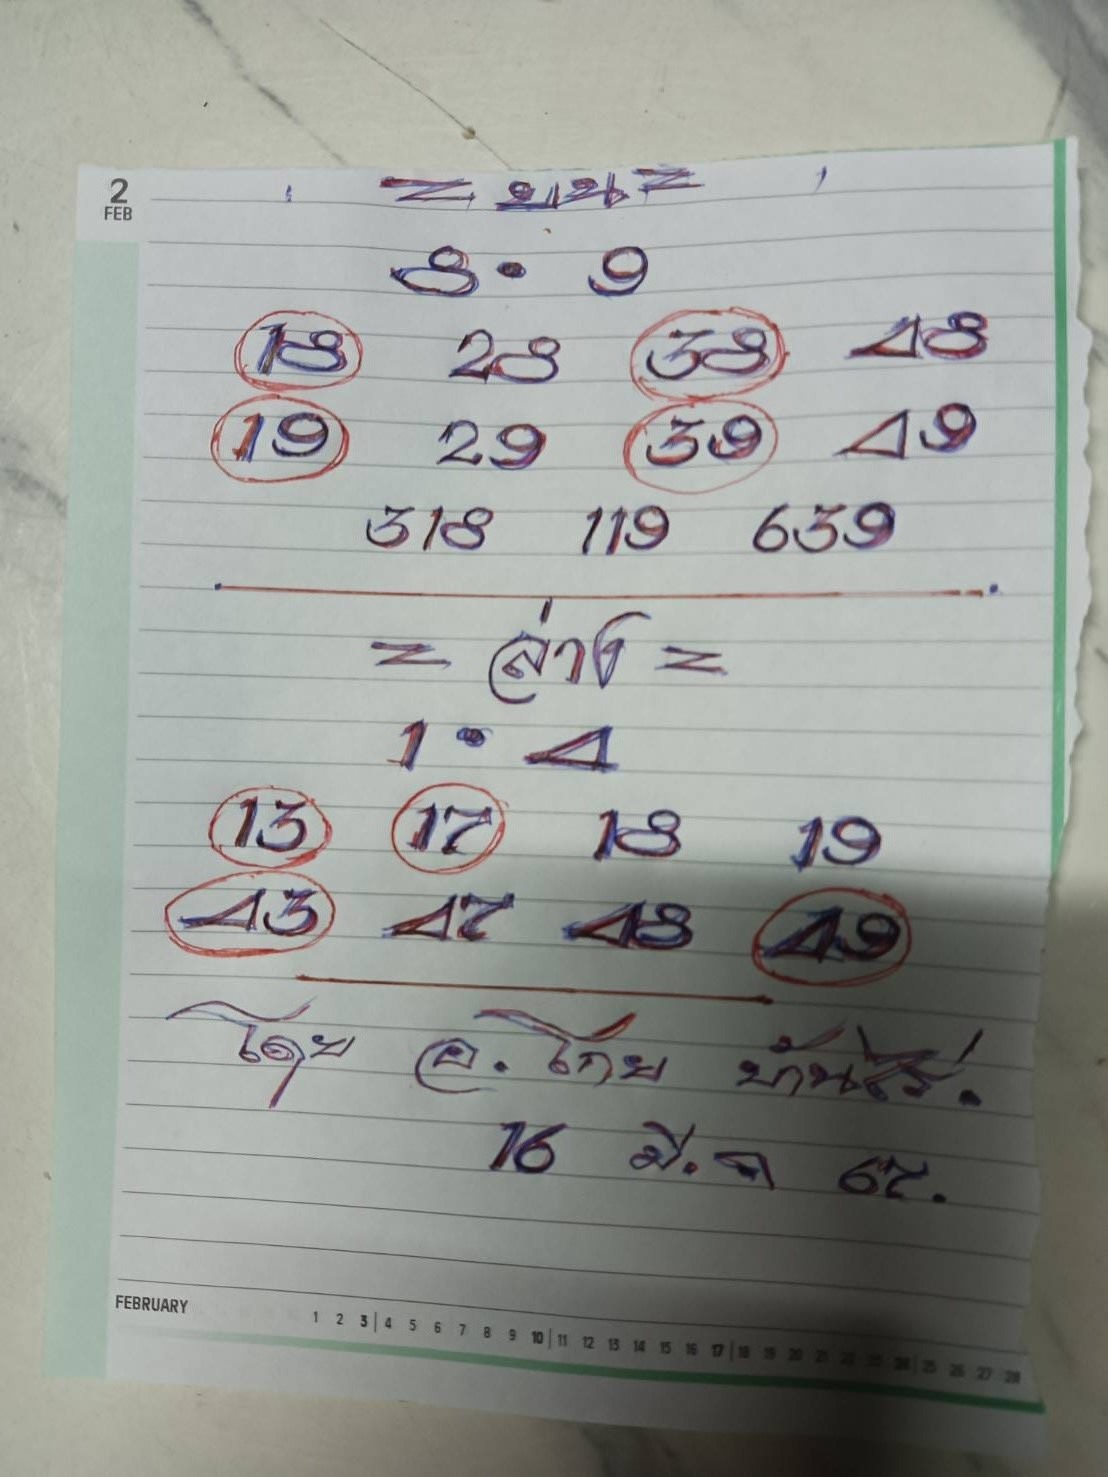 2
FEB
= บน =
8 • 9
18 28 38 48
19 29 39 49
318 119 639
= ล่าง =
1 • 4
13 17 18 19
43 47 48 49
โดย อ. โกย บ้านไร่.
16 มี.ค 67.
FEBRUARY 1 2 3 4 5 6 7 8 9 10 11 12 13 14 15 16 17 18 19 20 21 22 23 24 25 26 27 28